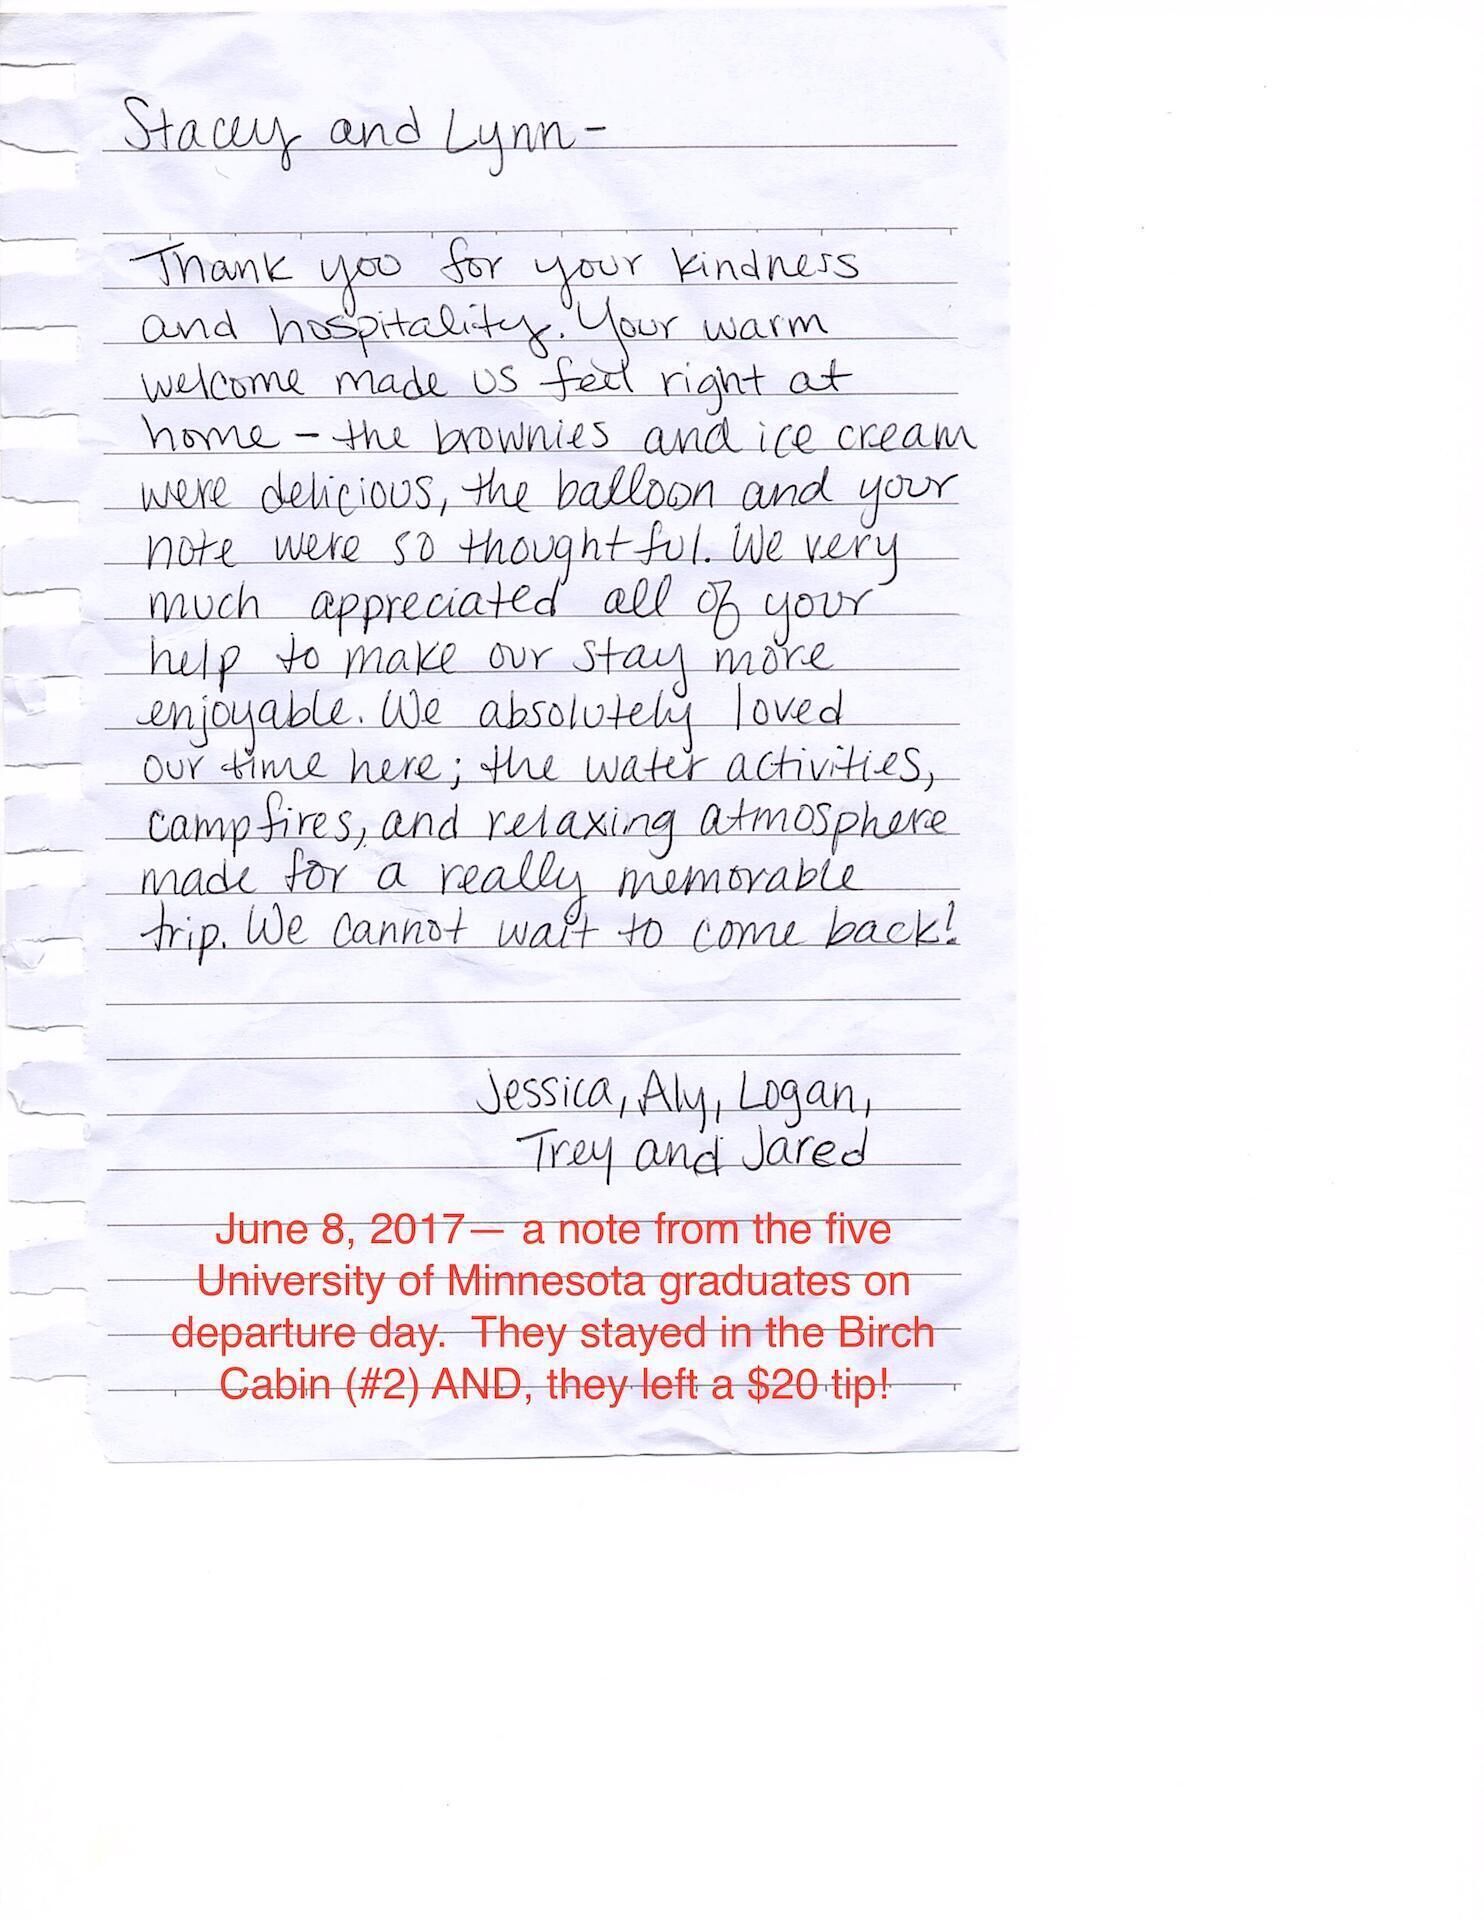 Stacey and Lynn-
Thank you for your kindness
and hospitality. Your warm
welcome made us feel right at
home - the brownies and ice cream
were delicious, the balloon and your
note were so thoughtful. We very
much appreciated all of your
help to make our stay more
enjoyable. We absolutely loved
our time here; the water activities,
campfires, and relaxing atmosphere
made for a really memorable
trip. We cannot wait to come back!
Jessica, Aly, Logan,
Trey and Jared
June 8, 2017— a note from the five
University of Minnesota graduates on
departure day.  They stayed in the Birch
Cabin (#2) AND, they left a $20 tip!